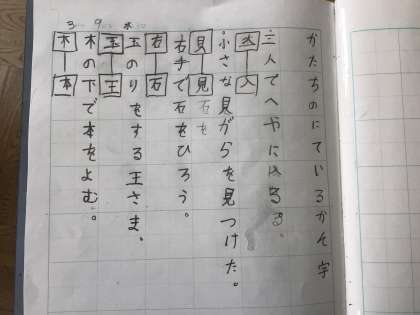 かたちのにているかん字
人 入
三人でへやに入る。
貝 見
小さな見がらを見つけた。
石を
右 石
右手で石をひろう。
玉 王
玉のりをする王さま。
木 本
木の下で本をよむ。